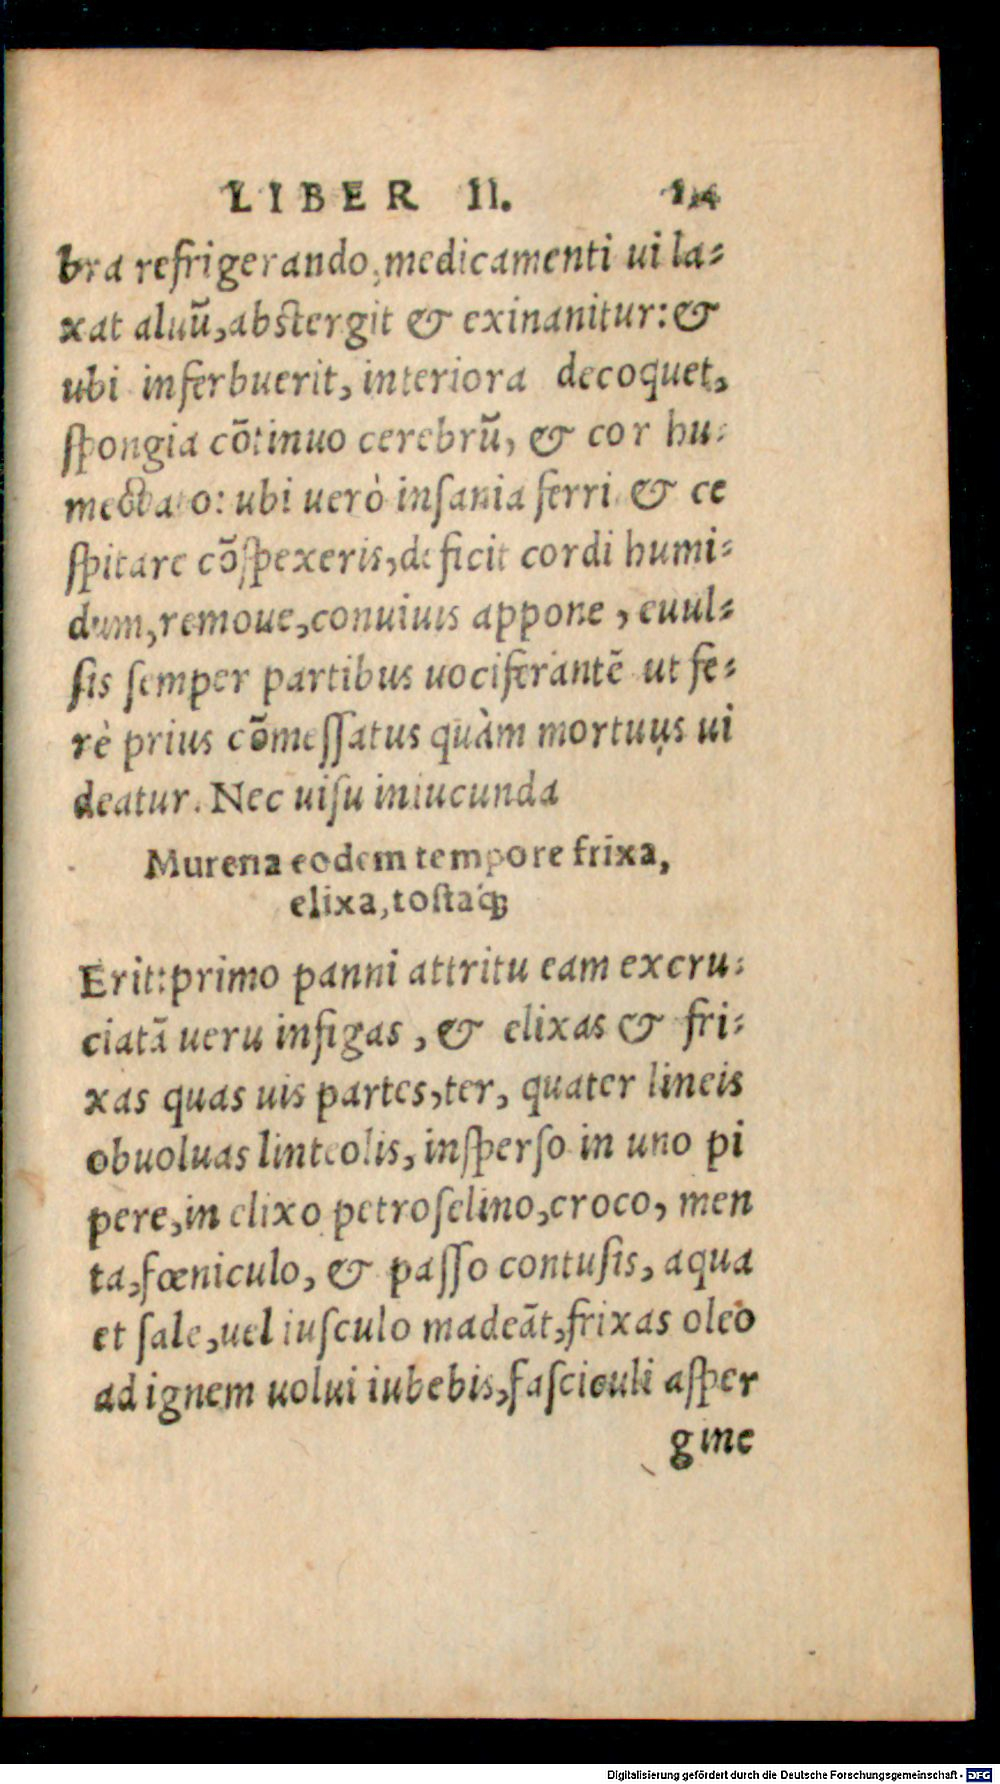 LIBER II. 14
bra refrigerando, medicamenti ui la⸗
xat aluū, abstergit & exinanitur: &
ubi inferbuerit, interiora decoquet,
ſpongia cōtinuo cerebrū, & cor hu⸗
mectato: ubi uerò inſania ferri & ce
ſpitare cōſpexeris, deficit cordi humi⸗
dum, remoue, conuiuis appone, euul⸗
ſis ſemper partibus uociferantē ut fe⸗
rè prius cōmeſſatus quàm mortuus ui
deatur. Nec uiſu iniucunda
Murena eodem tempore frixa,
elixa, toſtaq́;
Erit: primo panni attritu eam excru⸗
ciatā ueru infigas, & elixas & fri⸗
xas quas uis partes, ter, quater lineis
obuoluas linteolis, inſperſo in uno pi
pere, in elixo petroſelino, croco, men
ta, fœniculo, & paſſo contuſis, aqua
et ſale, uel iuſculo madeāt, frixas oleo
ad ignem uolui iubebis, faſciculi aſper
gine
Digitalisierung gefördert durch die Deutsche Forschungsgemeinschaft - DFG